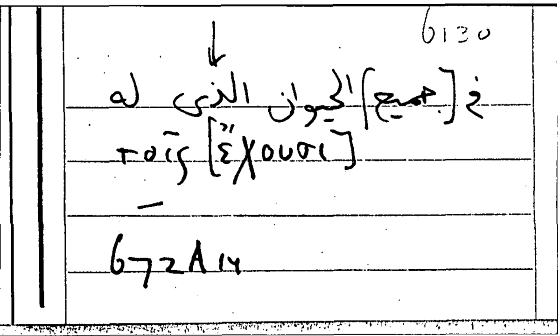 6130
في [جميع] الحيوان الذى له
τοῖς [ἔχουσι]
672A14